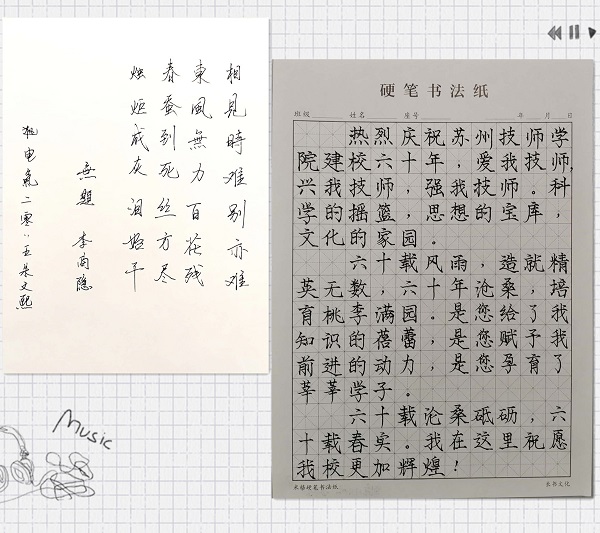 相見時难别亦难
東風無力百花残
春蚕到死丝方尽
烛炬成灰泪始干
無題 李商隐
硬笔书法纸
班级 姓名 座号 年 月 日
热烈庆祝苏州技师学
院建校六十年，爱我技师，
兴我技师，强我技师。科
学的摇篮，思想的宝库，
文化的家园。
六十载风雨，造就精
英无数，六十年沧桑，培
育桃李满园。是您给了我
知识的蓓蕾，是您赋予我
前进的动力，是您孕育了
莘莘学子。
六十载沧桑砥砺，六
十载春实。我在这里祝愿
我校更加辉煌！
米格硬笔书法纸
Music